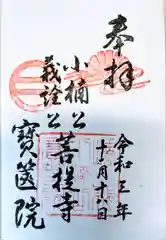 奉拝
小楠公
義詮公
菩提寺
寶筐院
令和三年
十月十六日